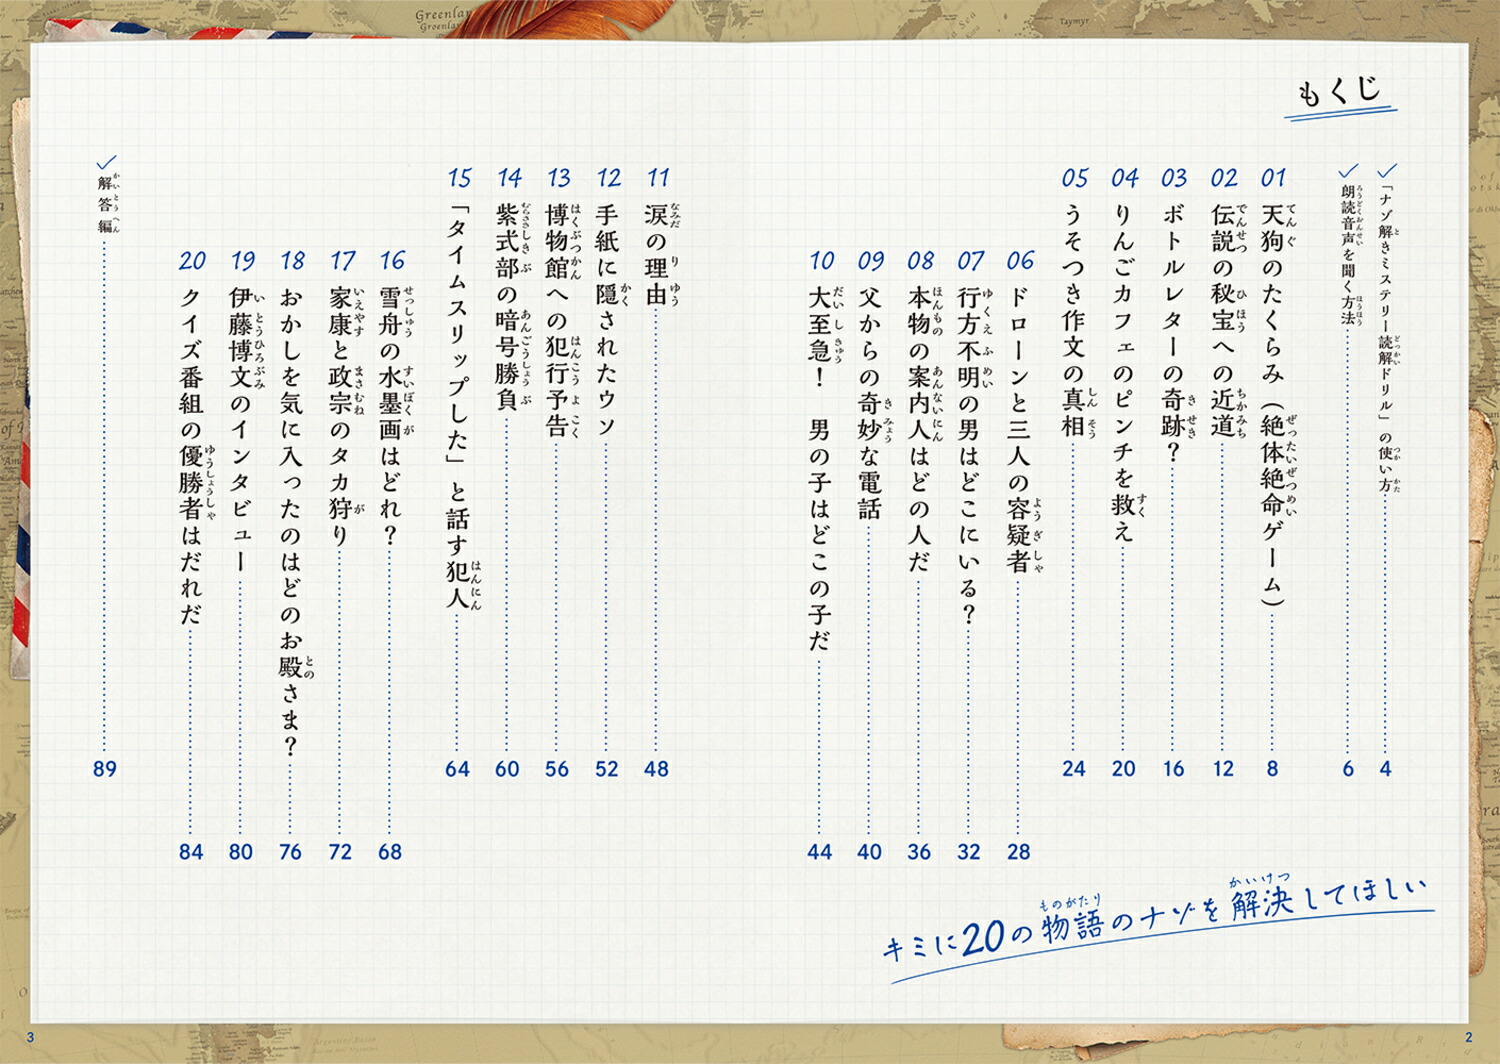 もくじ
「ナゾ解きミステリー読解ドリル」の使い方 4
朗読音声を聞く方法 6
01 天狗のたくらみ（絶体絶命ゲーム） 8
02 伝説の秘宝への近道 12
03 ボトルレターの奇跡？ 16
04 りんごカフェのピンチを救え 20
05 うそつき作文の真相 24
06 ドローンと三人の容疑者 28
07 行方不明の男はどこにいる？ 32
08 本物の案内人はどの人だ 36
09 父からの奇妙な電話 40
10 大至急！ 男の子はどこの子だ 44
キミに20の物語のナゾを解決してほしい
2
11 涙の理由 48
12 手紙に隠されたウソ 52
13 博物館への犯行予告 56
14 紫式部の暗号勝負 60
15 「タイムスリップした」と話す犯人 64
16 雪舟の水墨画はどれ？ 68
17 家康と政宗のタカ狩り 72
18 おかしを気に入ったのはどのお殿さま？ 76
19 伊藤博文のインタビュー 80
20 クイズ番組の優勝者はだれだ 84
解答編 89
3